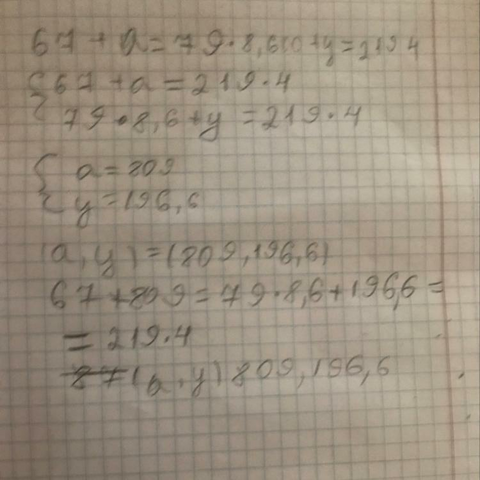 67 + a = 79 · 8,6 + y = 219 · 4
{ 67 + a = 219 · 4
79 · 8,6 + y = 219 · 4
{ a = 809
y = 196,6
(a, y) = (809, 196,6)
67 + 809 = 79 · 8,6 + 196,6 =
= 219 · 4
(a, y) 809, 196,6